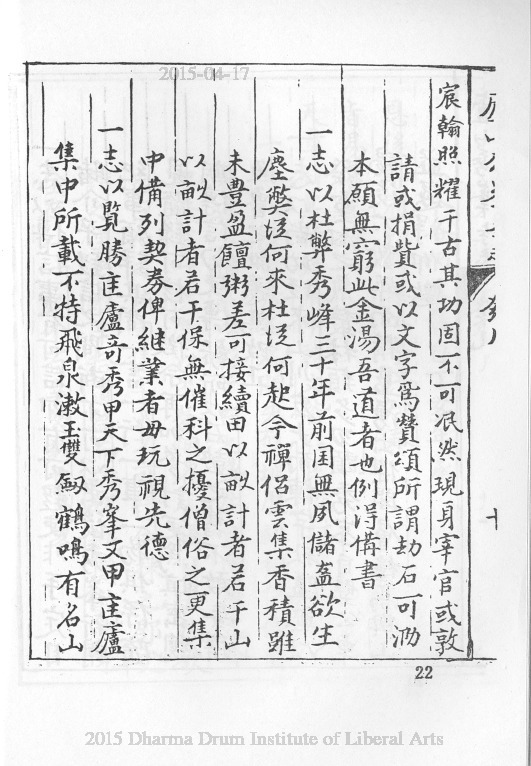 2015-04-17
宸翰照耀千古其功固不可泯然現身宰官或敦
請或捐貲或以文字爲贊頌所謂劫石可泐
本願無窮此金湯吾道者也例淂備書
一志以杜弊秀峰三十年前囷無夙儲盍欲生
塵獘從何來杜從何起今禪侶雲集香積雖
未豊盈饘粥差可接續田以畝計者若干山
以畝計者若干保無催科之擾僧俗之更集
中備列契券俾継業者毋玩視先德
一志以覽勝匡廬竒秀甲天下秀峯又甲匡廬
集中所載不特飛泉漱玉雙劔鶴鳴有名山
22
2015 Dharma Drum Institute of Liberal Arts